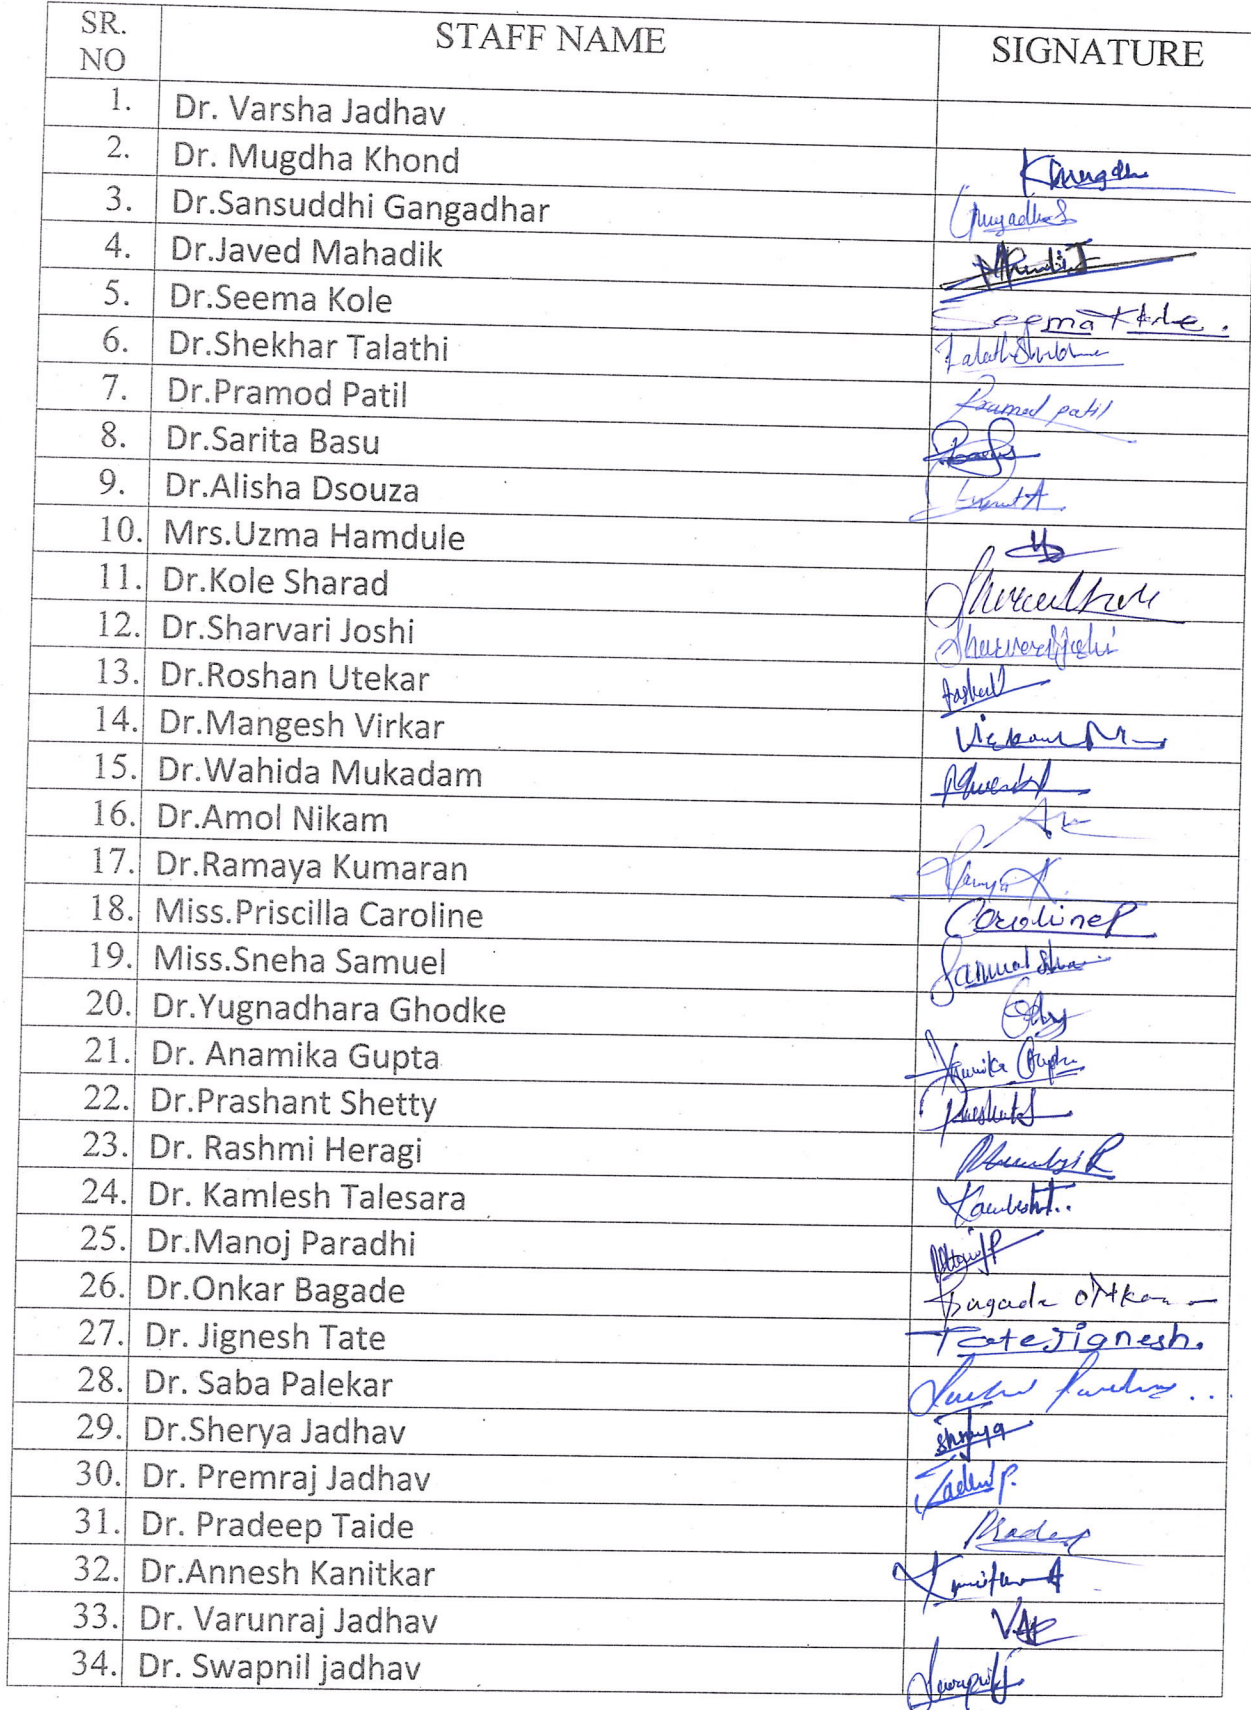 SR. NO STAFF NAME SIGNATURE
1. Dr. Varsha Jadhav
2. Dr. Mugdha Khond
3. Dr.Sansuddhi Gangadhar
4. Dr.Javed Mahadik
5. Dr.Seema Kole Seema Kole.
6. Dr.Shekhar Talathi
7. Dr.Pramod Patil Pramod patil
8. Dr.Sarita Basu
9. Dr.Alisha Dsouza
10. Mrs.Uzma Hamdule
11. Dr.Kole Sharad
12. Dr.Sharvari Joshi
13. Dr.Roshan Utekar
14. Dr.Mangesh Virkar
15. Dr.Wahida Mukadam
16. Dr.Amol Nikam
17. Dr.Ramaya Kumaran
18. Miss.Priscilla Caroline CarolineP
19. Miss.Sneha Samuel
20. Dr.Yugnadhara Ghodke
21. Dr. Anamika Gupta
22. Dr.Prashant Shetty
23. Dr. Rashmi Heragi
24. Dr. Kamlesh Talesara
25. Dr.Manoj Paradhi
26. Dr.Onkar Bagade
27. Dr. Jignesh Tate Tate Jignesh.
28. Dr. Saba Palekar
29. Dr.Sherya Jadhav
30. Dr. Premraj Jadhav
31. Dr. Pradeep Taide
32. Dr.Annesh Kanitkar
33. Dr. Varunraj Jadhav
34. Dr. Swapnil jadhav